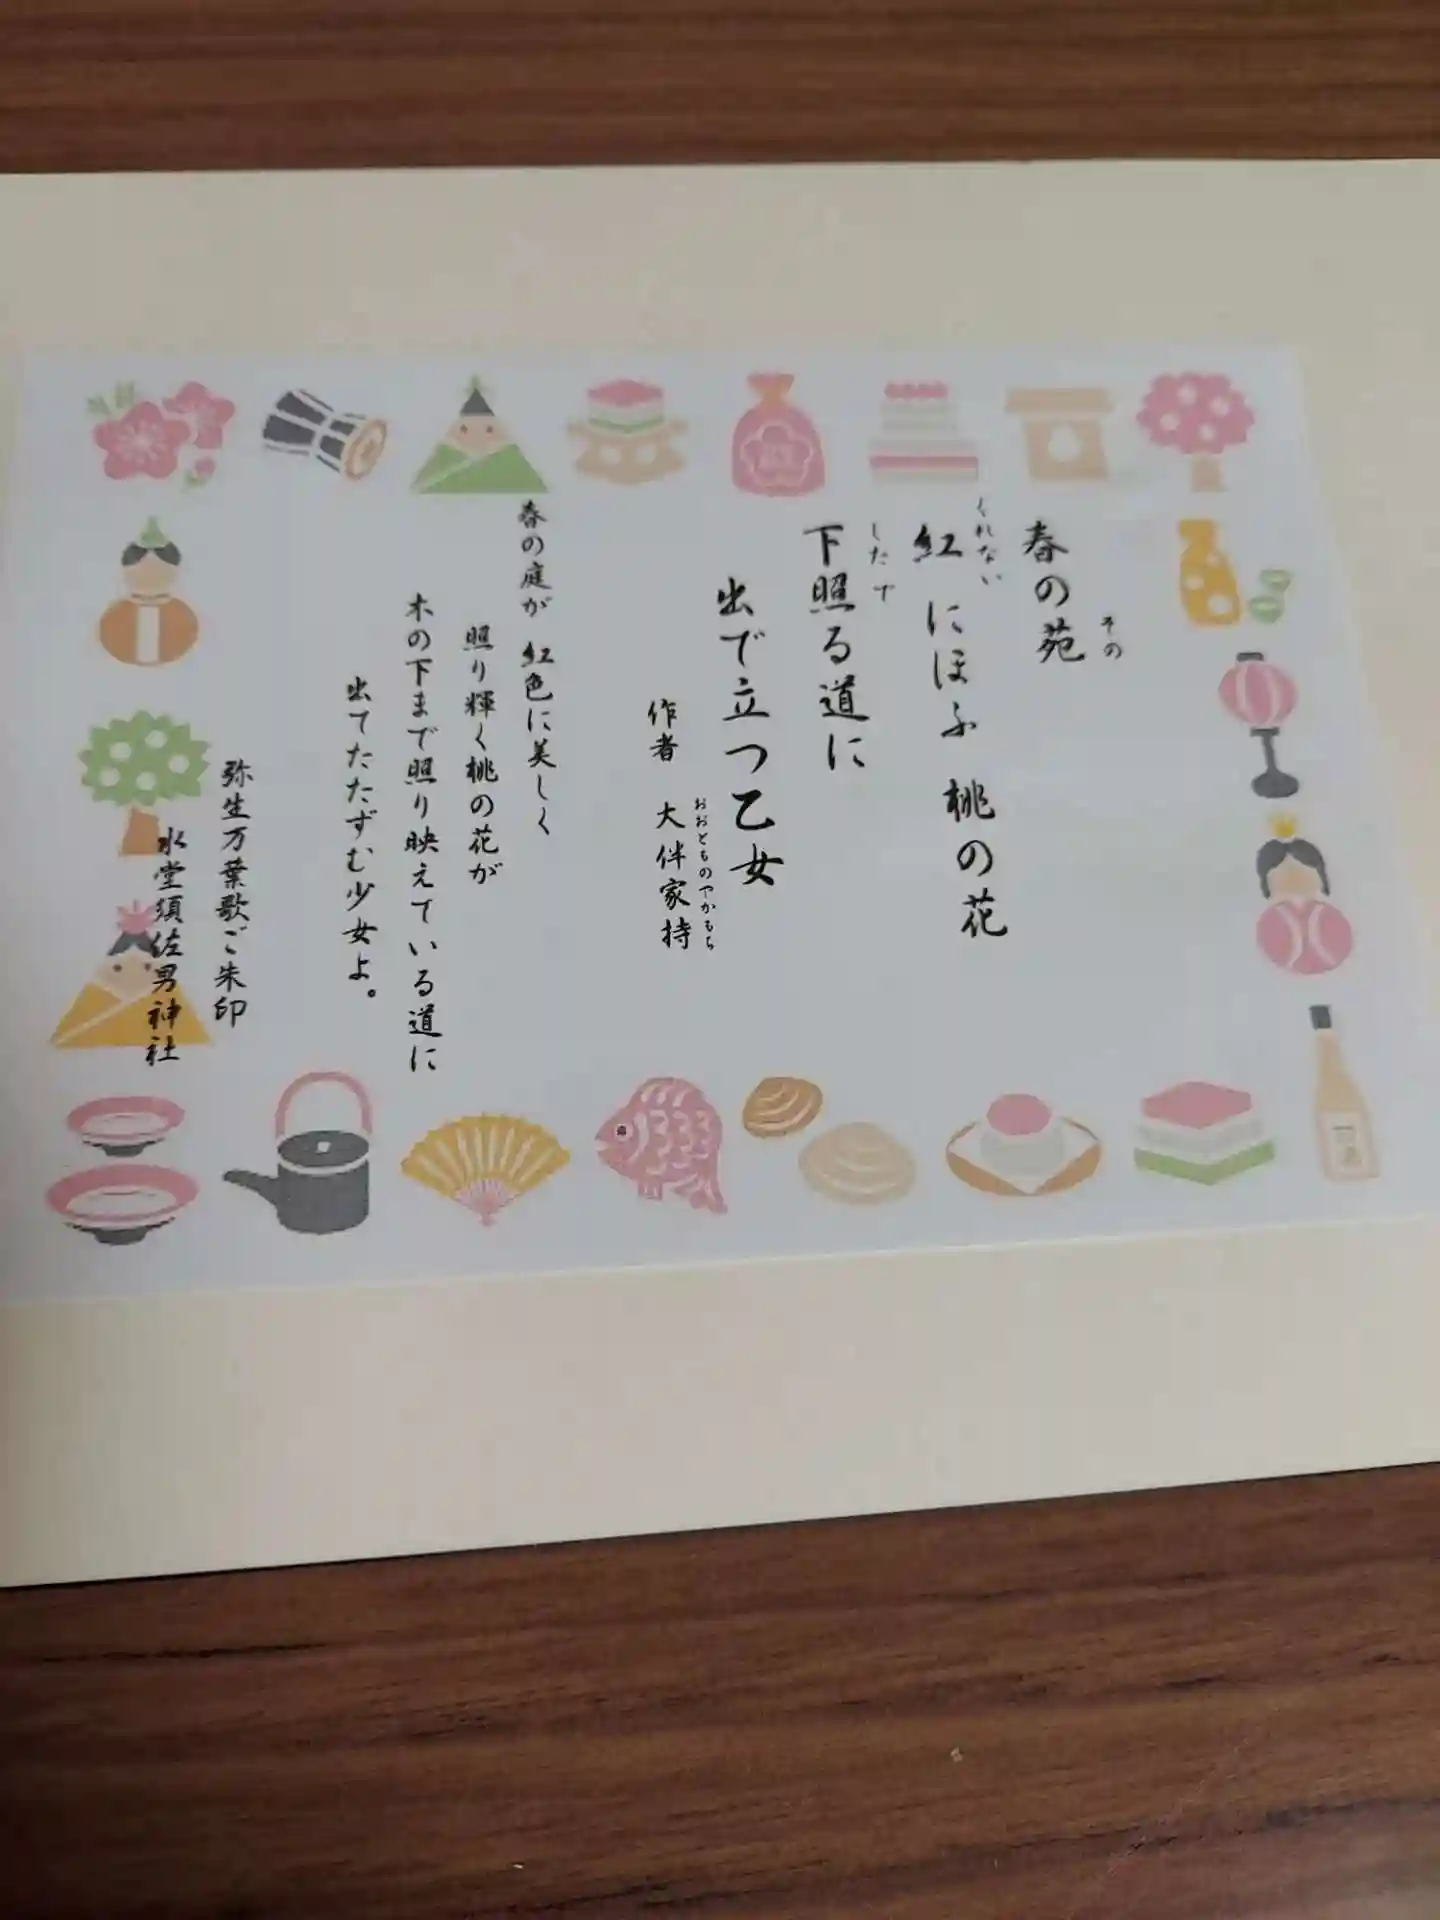 春の苑
その
紅 にほふ 桃の花
くれない
下照る道に
したで
出で立つ乙女
作者 大伴家持
おおとものやかもち
春の庭が 紅色に美しく
照り輝く桃の花が
木の下まで照り映えている道に
出てたたずむ少女よ。
弥生万葉歌ご朱印
水堂須佐男神社